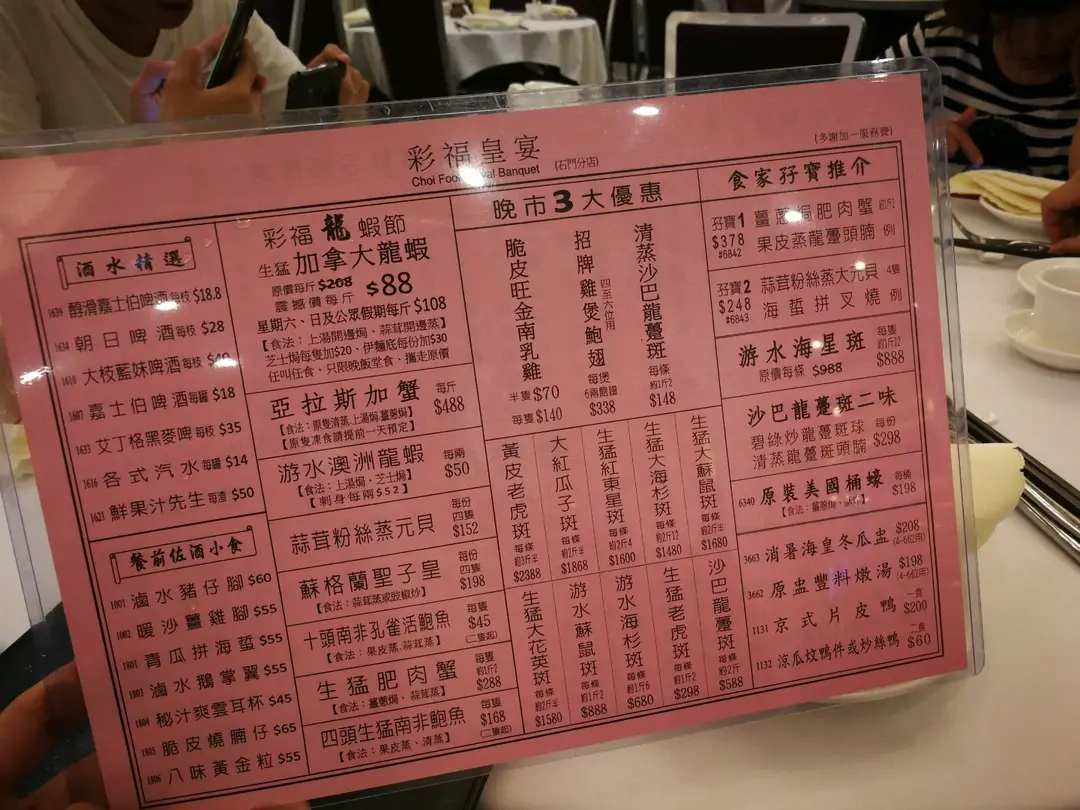 彩福皇宴 (石門分店)
Choi Fook Royal Banquet
(多謝加一服務費)
酒水精選
1639 醇滑嘉士伯啤酒每枝 $18.8
1634 朝日啤酒每枝 $28
1610 大枝藍妹啤酒每枝
1607 嘉士伯啤酒每罐 $18
1633 艾丁格黑麥啤每枝 $35
1616 各式汽水每罐 $14
1621 鮮果汁先生每渣 $50
餐前佐酒小食
1001 滷水豬仔腳 $60
1002 暖沙薑雞腳 $55
1801 青瓜拼海蜇 $55
1803 滷水鵝掌翼 $55
1804 秘汁爽雲耳杯 $45
1805 脆皮燒腩仔 $65
1806 八味黃金粒 $55
彩福龍蝦節
生猛加拿大龍蝦
原價每斤 $208
震撼價每斤 $88
星期六、日及公眾假期每斤 $108
【食法：上湯開邊焗、蒜茸開邊蒸】
芝士焗每隻加$20、伊麵底每份加$30
任叫任食、只限晚飯堂食、攜走原價
亞拉斯加蟹 每斤 $488
【食法：原隻清蒸.上湯焗.薑蔥焗】
【原隻凍食請提前一天預定】
游水澳洲龍蝦 每兩 $50
【食法：上湯焗、芝士焗】
【刺身每兩$52】
蒜茸粉絲蒸元貝 每份四隻 $152
蘇格蘭聖子皇 每份四隻 $198
【食法：蒜茸蒸或豉椒炒】
十頭南非孔雀活鮑魚 每隻 $45 (二隻起)
【食法：果皮蒸.蒜茸蒸】
生猛肥肉蟹 每隻約1斤2 $288
【食法：薑蔥焗、蒜茸蒸】
四頭生猛南非鮑魚 每隻 $168 (二隻起)
【食法：果皮蒸、清蒸】
晚市3大優惠
脆皮旺金南乳雞 半隻 $70 每隻 $140
招牌雞煲鮑翅 四至六位用 每煲 6兩鮑翅 $338
清蒸沙巴龍躉斑 每條約1斤2 $148
黃皮老虎斑 每條約3斤半 $2388
大紅瓜子斑 每條約2斤半 $1868
生猛紅東星斑 每條約2斤4 $1600
生猛大海杉斑 每條約2斤12 $1480
生猛大蘇鼠斑 每條約2斤半 $1680
生猛大花英斑 每條約2斤半 $1580
游水蘇鼠斑 每條約1斤2 $888
游水海杉斑 每條約1斤6 $680
生猛老虎斑 每條約1斤2 $298
沙巴龍躉斑 每條約2斤 $588
食家孖寶推介
孖寶1 薑蔥焗肥肉蟹
$378 果皮蒸龍躉頭腩 例
#6842
孖寶2 蒜茸粉絲蒸大元貝 4隻
$248 海蜇拼叉燒 例
#6843
游水海星斑 每隻約1斤12 $888
原價每條 $988
沙巴龍躉斑二味
碧綠炒龍躉斑球 每份
清蒸龍躉斑頭腩 $298
6340 原裝美國桶蠔 每桶 $198
3663 消暑海皇冬瓜盅 $208 (4-6位用)
3662 原盅豐料燉湯 $198 (4-6位用)
1131 京式片皮鴨 一食 $200
1132 涼瓜炆鴨件或炒絲鴨 二食 $60